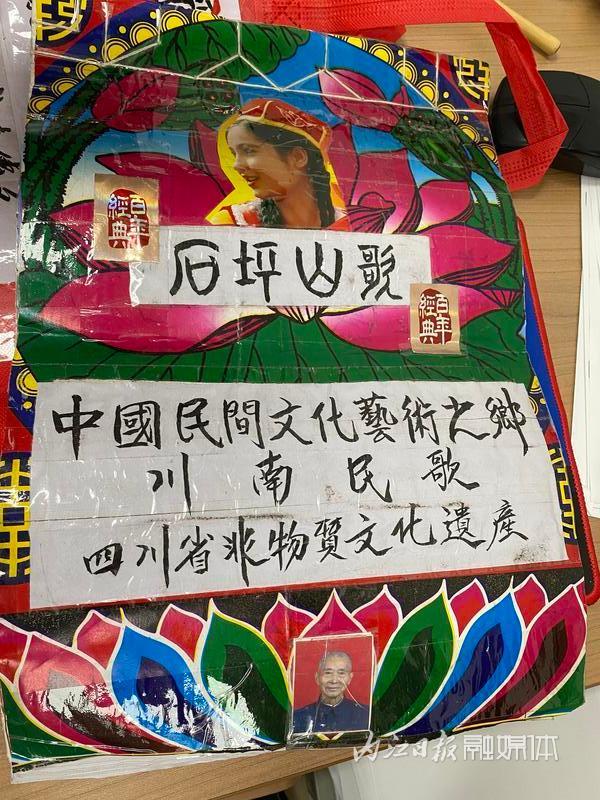 百年
經典
石坪山歌
百年
經典
中國民間文化藝術之鄉
川南民歌
四川省非物質文化遺產
内江日报融媒体